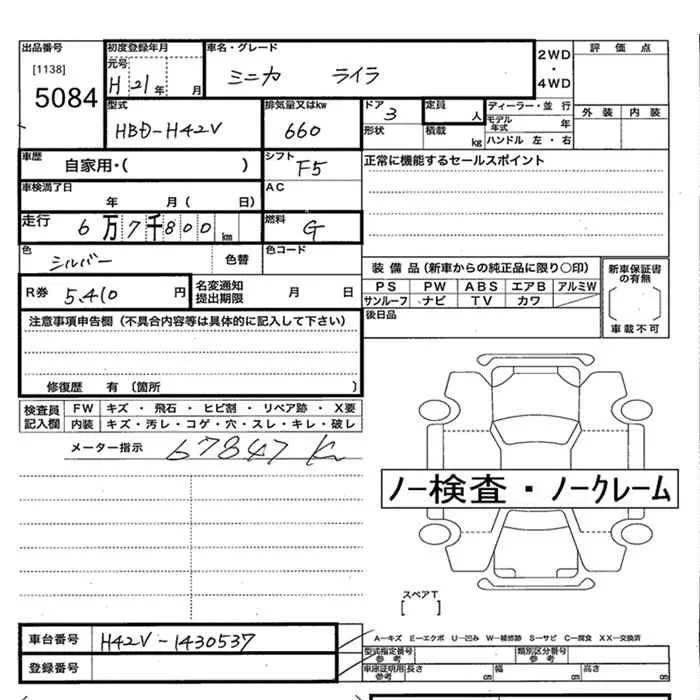 出品番号 初度登録年月 車名・グレード 2WD・4WD 評価点
[1138] 元号
5084 H 21年 月 ミニカ ライラ
型式 排気量又はkw ドア 定員 ディーラー・並行 外装 内装
HBD-H42V 660 3 人 モデル年式 年
形状 積載 kg ハンドル 左・右
車歴 自家用・( ) シフト F5 正常に機能するセールスポイント
車検満了日 年 月( 日) AC
走行 6万7千800km 燃料 G
色 シルバー 色替 色コード
装備品(新車からの純正品に限り○印) 新車保証書の有無
R券 5.410円 名変通知提出期限 月 日
PS PW ABS エアB アルミW
サンルーフ ナビ TV カワ
後日品 車載不可
注意事項申告欄(不具合内容等は具体的に記入して下さい)
修復歴 有(箇所 )
検査員記入欄 FW キズ・飛石・ヒビ割・リペア跡・X要
内装 キズ・汚レ・コゲ・穴・スレ・キレ・破レ
メーター指示 67847 K
ノー検査・ノークレーム
スペアT
[ ]
車台番号 H42V-1430537
A-キズ E-エクボ U-凹み W-補修跡 S-サビ C-腐食 XX-交換済
登録番号
型式指定番号 参考 類別区分番号 参考
車庫証明用 参考 長さ cm 幅 cm 高さ cm